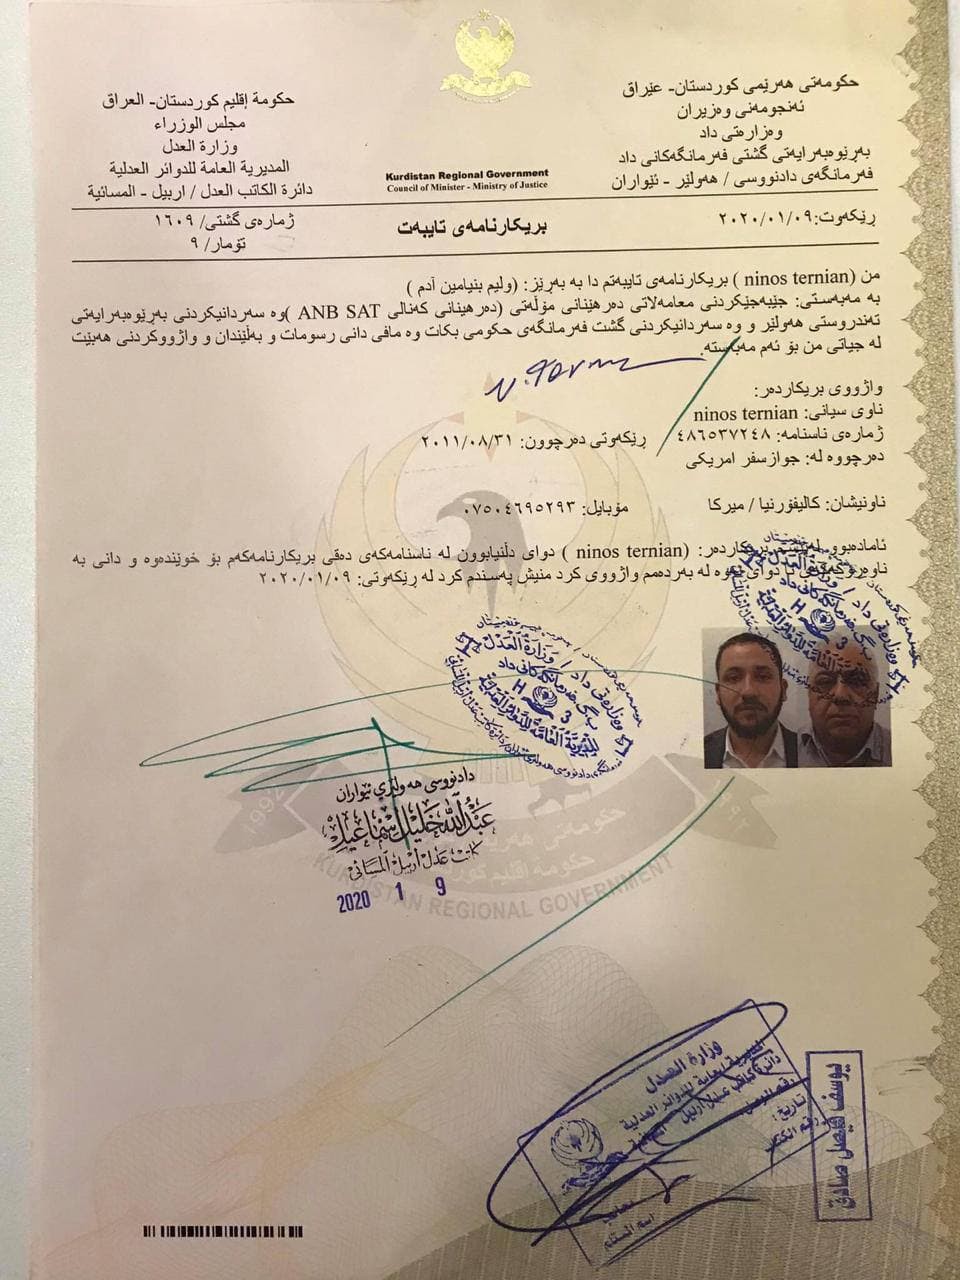 حکومەتی هەرێمی کوردستان-عێراق
ئەنجومەنی وەزیران
وەزارەتی داد
بەڕێوەبەرایەتی گشتی فەرمانگەکانی داد
فەرمانگەی دادنووسی / هەولێر - ئێواران
Kurdistan Regional Government
Council of Minister - Ministry of Justice
حكومة إقليم كوردستان- العراق
مجلس الوزراء
وزارة العدل
المديرية العامة للدوائر العدلية
دائرة الكاتب العدل / اربيل - المسائية
ڕێکەوت:٢٠٢٠/٠١/٠٩
بریکارنامەی تایبەت
ژمارەی گشتی/ ١٦٠٩
تۆمار/ ٩
من (ninos ternian ) بریکارنامەی تایبەتم دا بە بەڕێز: (ولیم بنیامین آدم )
بە مەبەستی: جێبەجێکردنی معامەلاتی دەرهێنانی مۆڵەتی (دەرهینانی کەنالی ANB SAT )وە سەردانیکردنی بەڕێوەبەرایەتی
تەندروستی هەولێر و وە سەردانیکردنی گشت فەرمانگەی حکومی بکات وە مافی دانی رسومات و بەڵێندان و واژووکردنی هەبێت
لە جیاتی من بۆ ئەم مەبەستە.
N. Ternian
واژووی بریکاردەر:
ناوی سیانی: ninos ternian
ژمارەی ناسنامە: ٤٨٦٥٣٧٢٤٨ ڕێکەوتی دەرچوون: ٢٠١١/٠٨/٣١
دەرچووە لە: جوازسفر امریکی
ناونیشان: کالیفۆرنیا / میرکا مۆبایل: ٠٧٥٠٤٦٩٥٢٩٣
ئامادەبوو بریکاردەر: (ninos ternian ) دوای دڵنیابوون لە ناسنامەکەی دەقی بریکارنامەکەم بۆ خوێندەوە و دانی بە
ناوەرۆکەکەی نا دوای ئەوە لە بەردەمم واژووی کرد منیش پەسندم کرد لە ڕێکەوتی: ٢٠٢٠/٠١/٠٩
وەزارەتی داد / وزارة العدل
فەرمانگەکانی داد
H 3
المديرية العامة للدوائر العدلية
وەزارەتی داد / وزارة العدل
فەرمانگەکانی داد
H 3
دادنووسی هەولێری ئێواران
عبدالله خليل إسماعيل
كاتب عدل أربيل المسائي
2020 1 9
1992
حکومەتی هەرێمی
حكومة إقليم
KURDISTAN REGIONAL GOVERNMENT
وزارة العدل
المديرية العامة للدوائر العدلية
دائرة كاتب عدل اربيل
رقم الوصل
تاريخ:
اسم المستلم
يوسف فيصل صادق